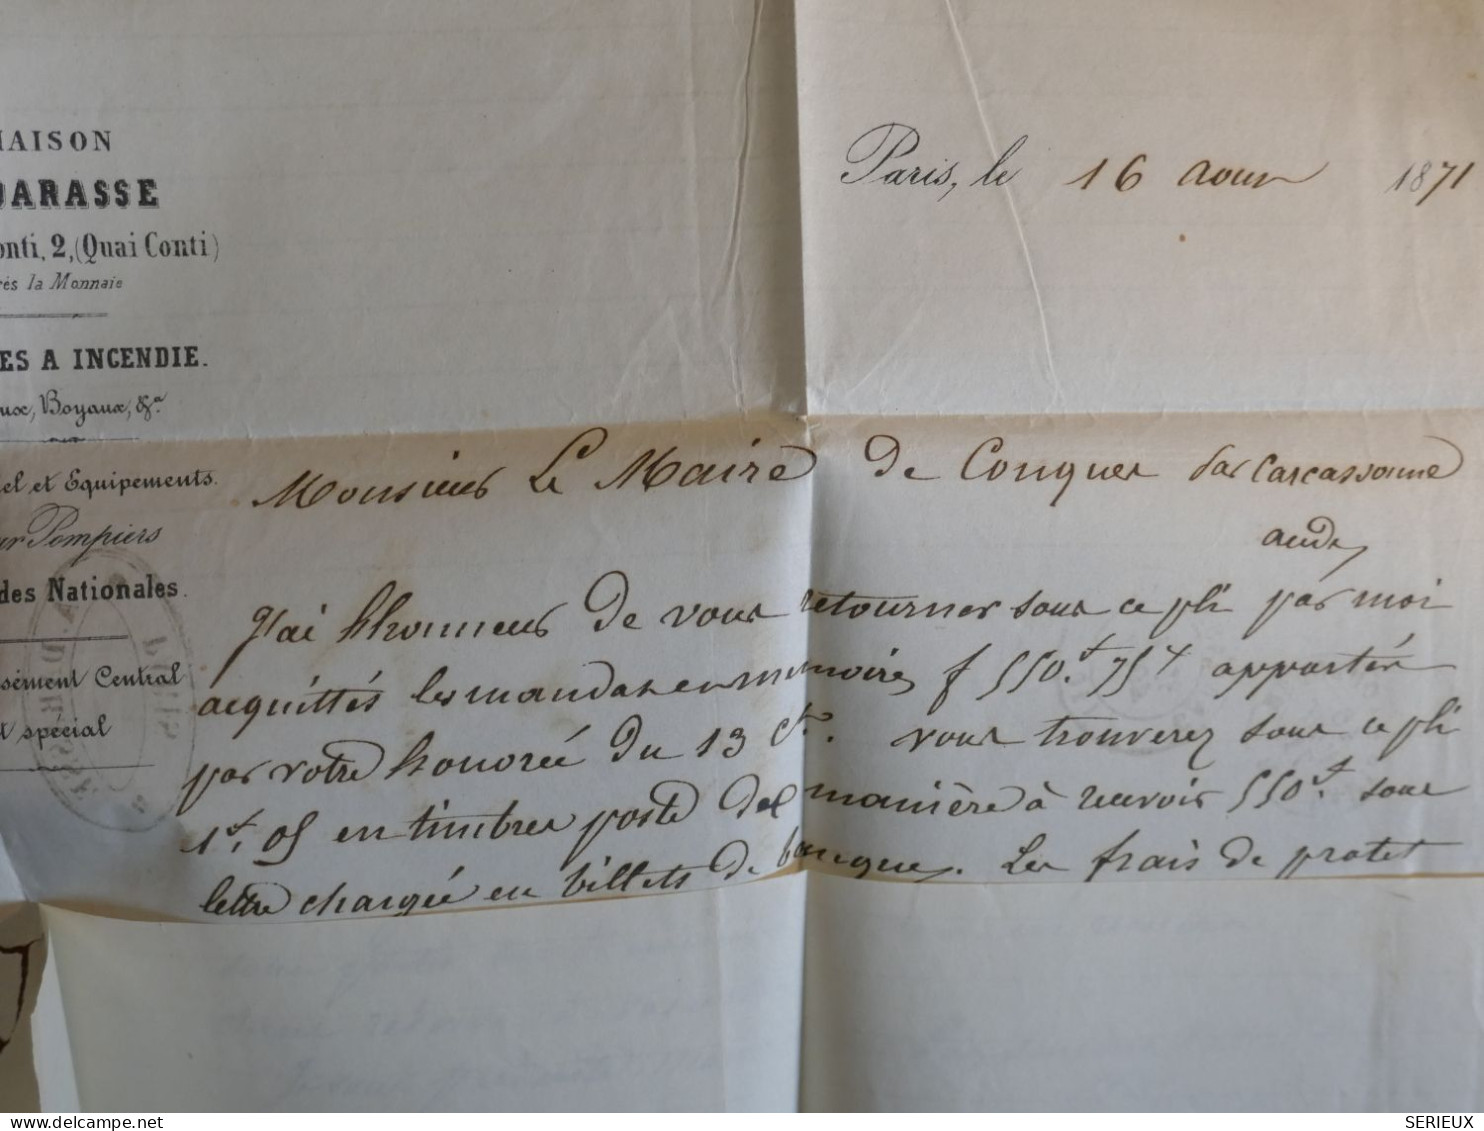 MAISON
DARASSE
onti, 2, (Quai Conti)
rès la Monnaie
ES A INCENDIE.
ux, Boyaux, &a.
el et Equipements.
ur Pompiers
des Nationales.
sément Central
t spécial
Paris, le 16 Aout 1871
Monsieur Le Maire de Conques par Carcassonne
aude
J'ai l'honneur de vous retourner sous ce pli par moi
acquittés les mandats en mémoires f 550.f 75c apportés
par votre honorée du 13 ct. vous trouverez sous ce pli
1f. 05 en timbres poste de manière à recevoir 550f. sous
lettre chargée en billets de banque. Les frais de protet
delcampe.net
SERIEUX